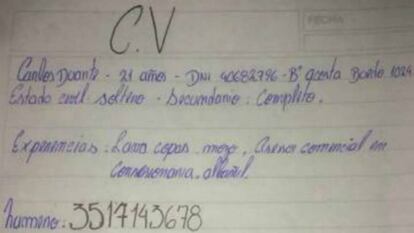 FECHA
C.V
Carlos Duarte - 21 años - DNI 40682796 - B° acosta Bordo 1024
Estado civil soltero - Secundario: Completo.
Experiencias. Lava copas. mozo. Asesor comercial en
Concesionaria. albañil.
numero: 3517143678